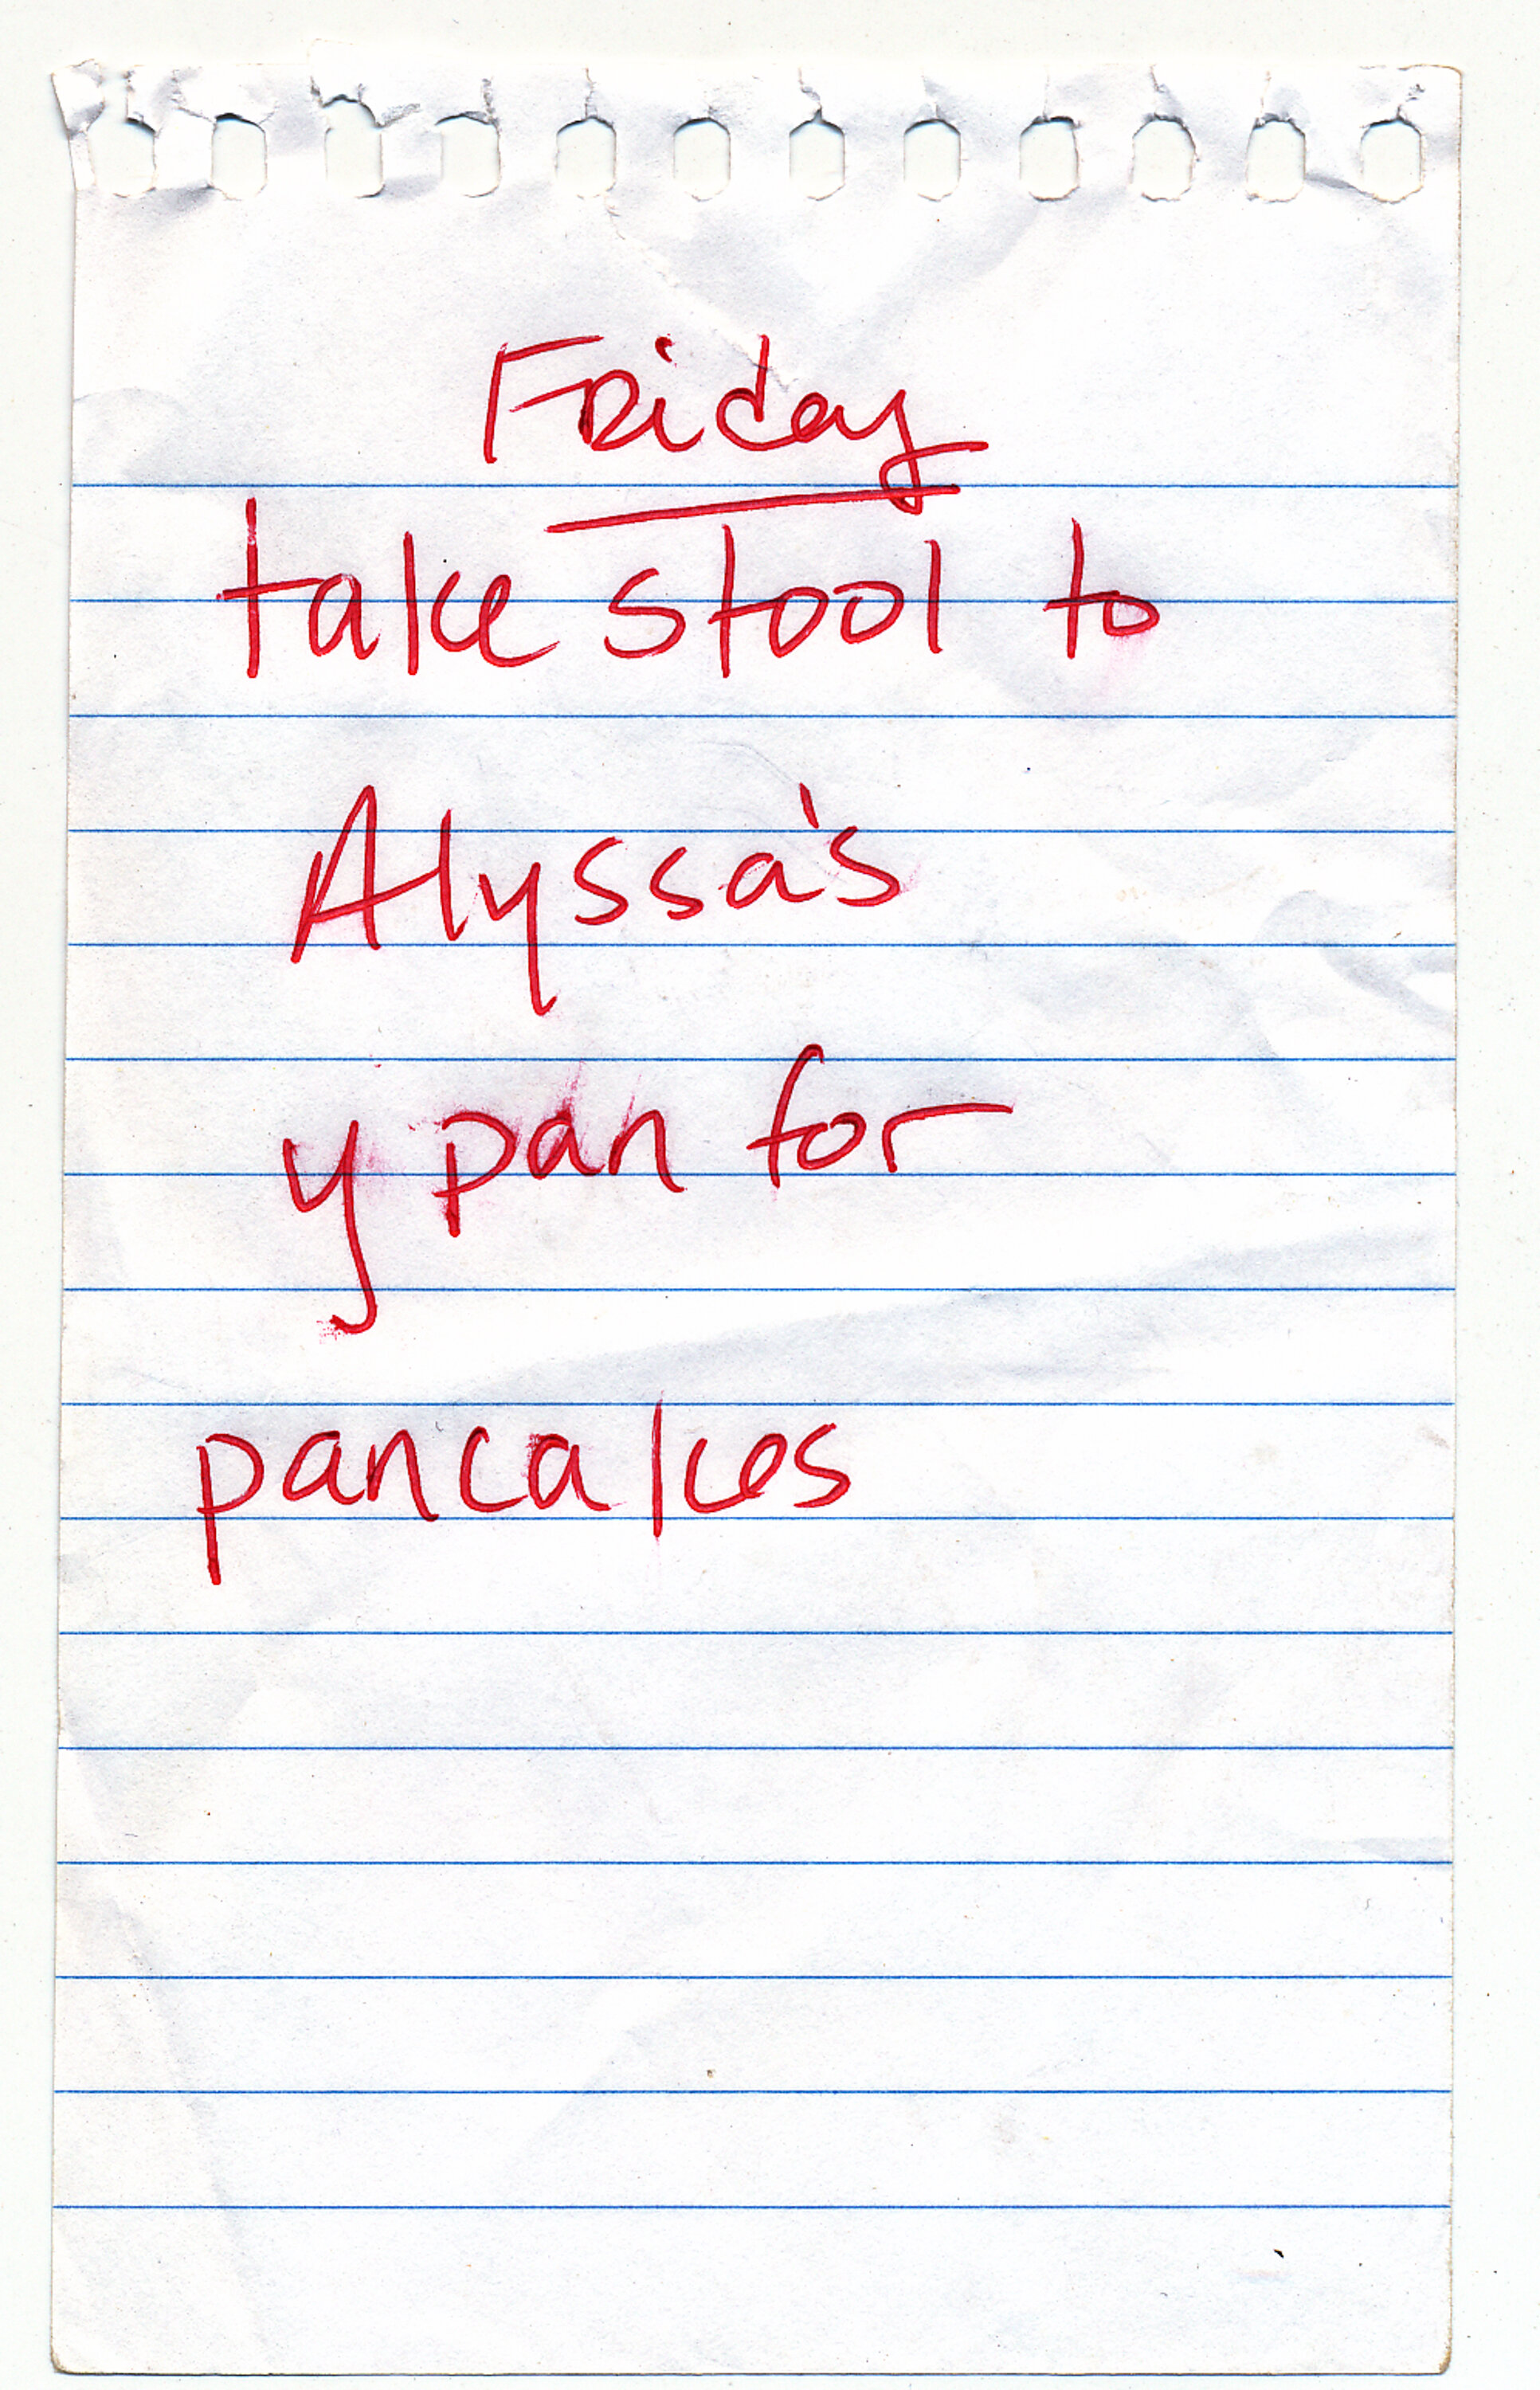 Friday
take stool to
Alyssa's
y pan for
pancakes